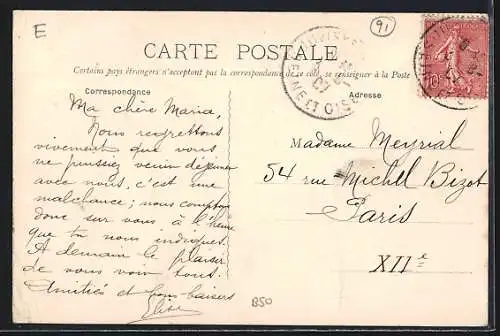 E
91
CARTE POSTALE
Certains pays étrangers n'acceptent pas la correspondance de ce côté, se renseigner à la Poste
Correspondance
Adresse
SEINE ET OISE
10
Ma chère Maria,
Nous regrettons
vivement que vous
ne puissiez venir déjeuner
avec nous, c'est une
malchance; nous comptons
donc sur vous à l'heure
que tu nous indiques.
A demain le plaisir
de vous voir tous.
Amitiés et bons baisers
Elise
Madame Meyrial
54 rue Michel Bizot
Paris
XIIe
B50